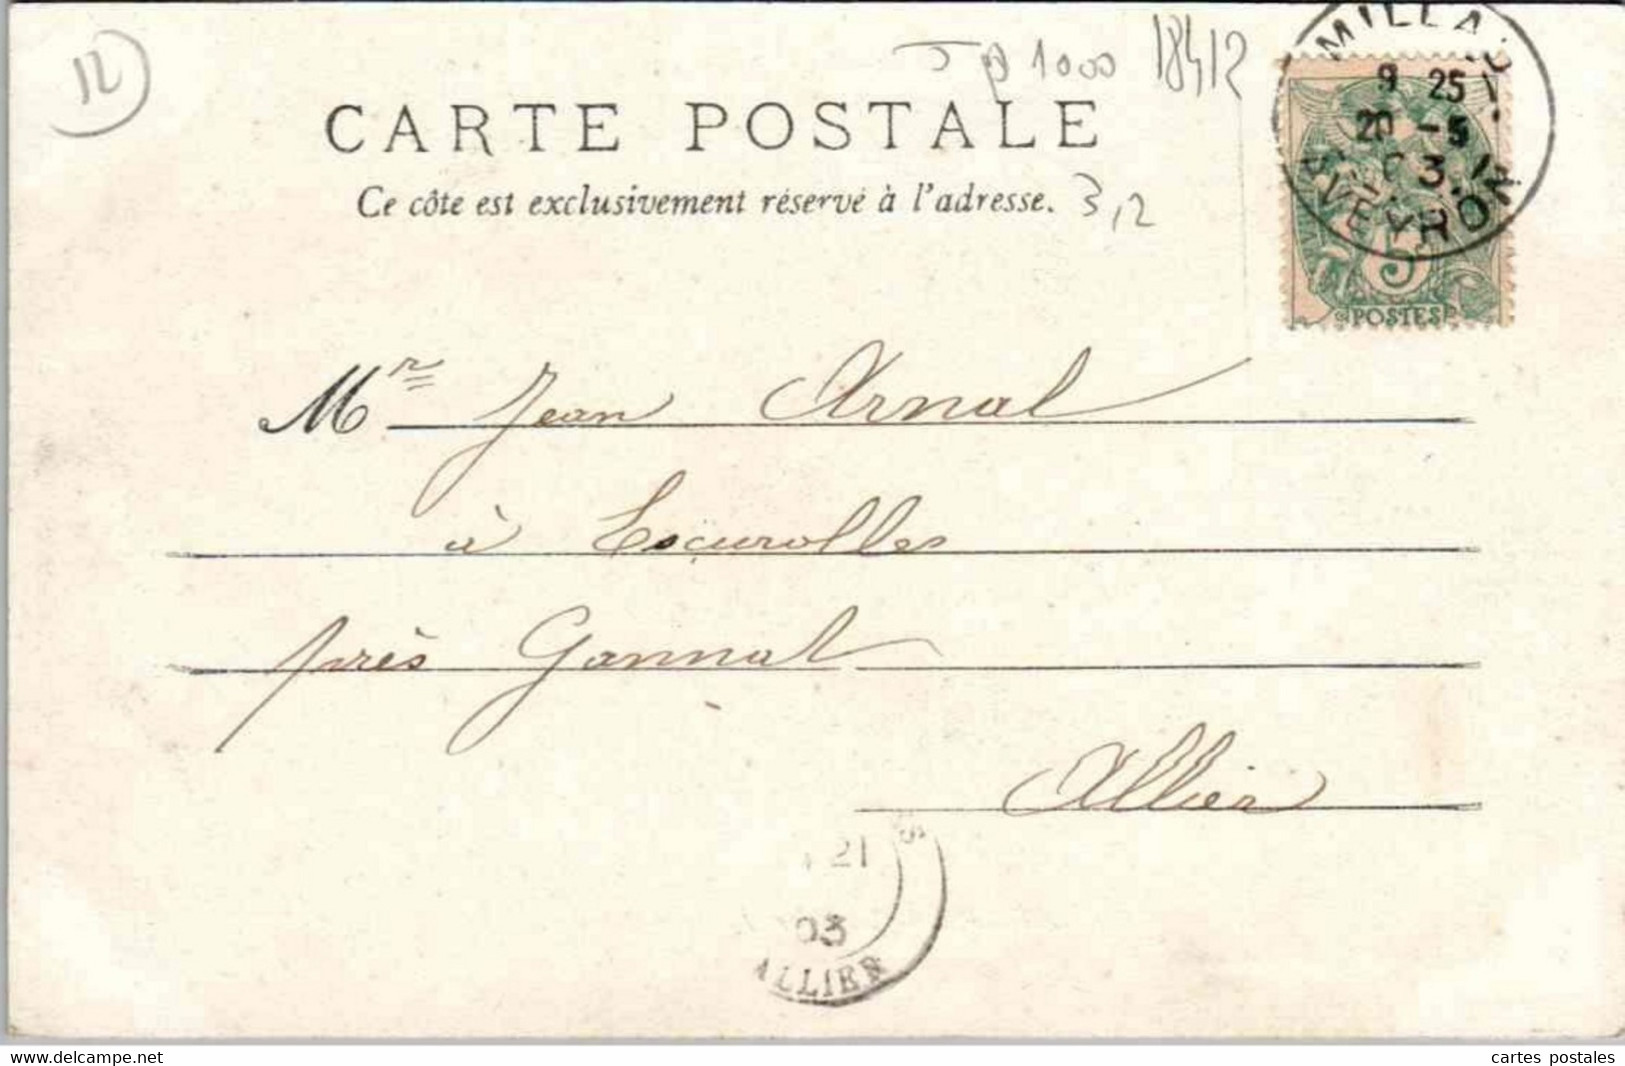 12
J B 1000 18412
CARTE POSTALE
Ce côte est exclusivement réservé à l'adresse. 3,2
MILLAU
9 25
20 -5
03
AVEYRON
5
POSTES
Mr Jean Arnal
à Escurolles
près Gannat
Allier
21
03
ALLIER
www.delcampe.net
cartes postales